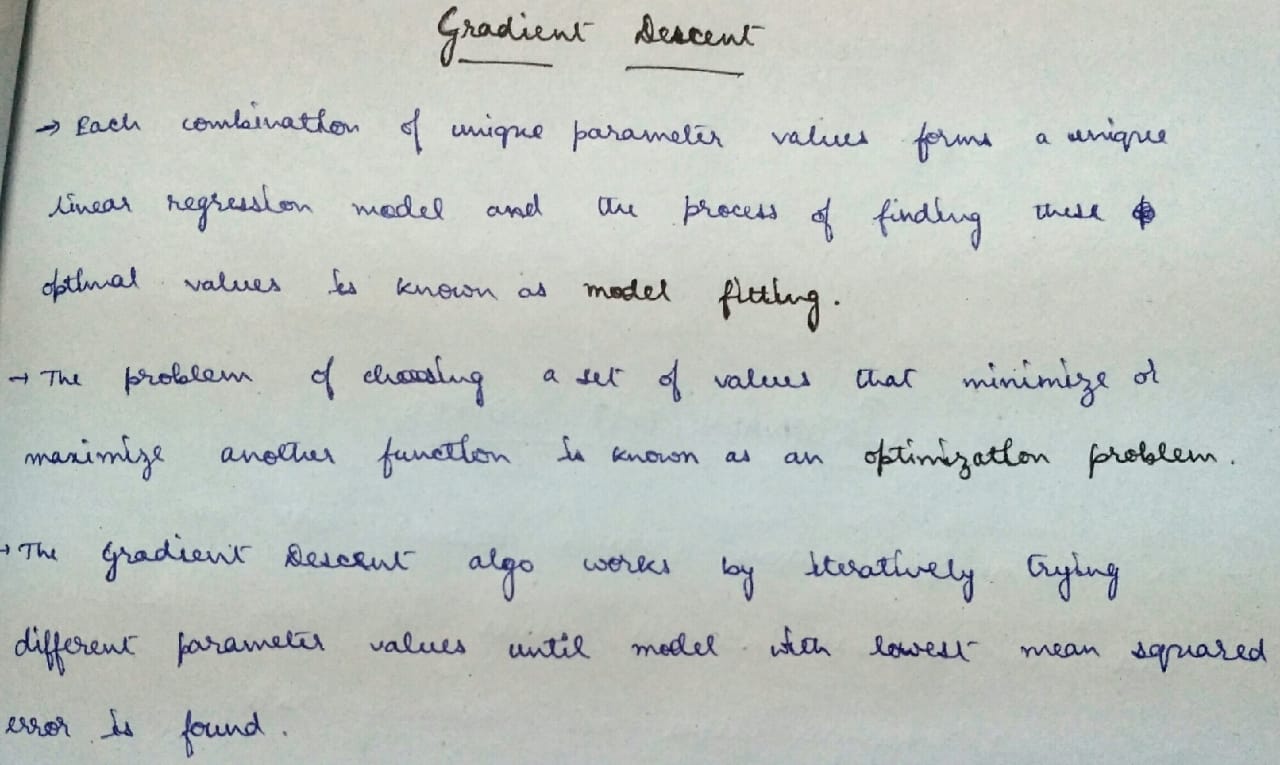 Gradient Descent
→ Each combination of unique parameter values forms a unique
linear regression model and the process of finding these
optimal values is known as model fitting.
→ The problem of choosing a set of values that minimize or
maximize another function is known as an optimization problem.
→ The Gradient Descent algo works by iteratively trying
different parameter values until model with lowest mean squared
error is found.